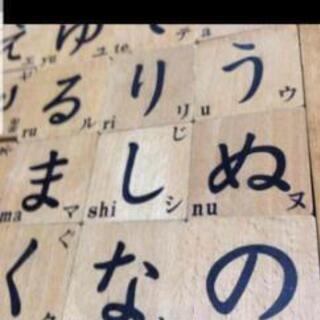 ゆ yu ユ te テ a
る ru ル り ri リ う u ウ
ま ma マ し shi シ じ ぬ nu ヌ
く ぐ な の